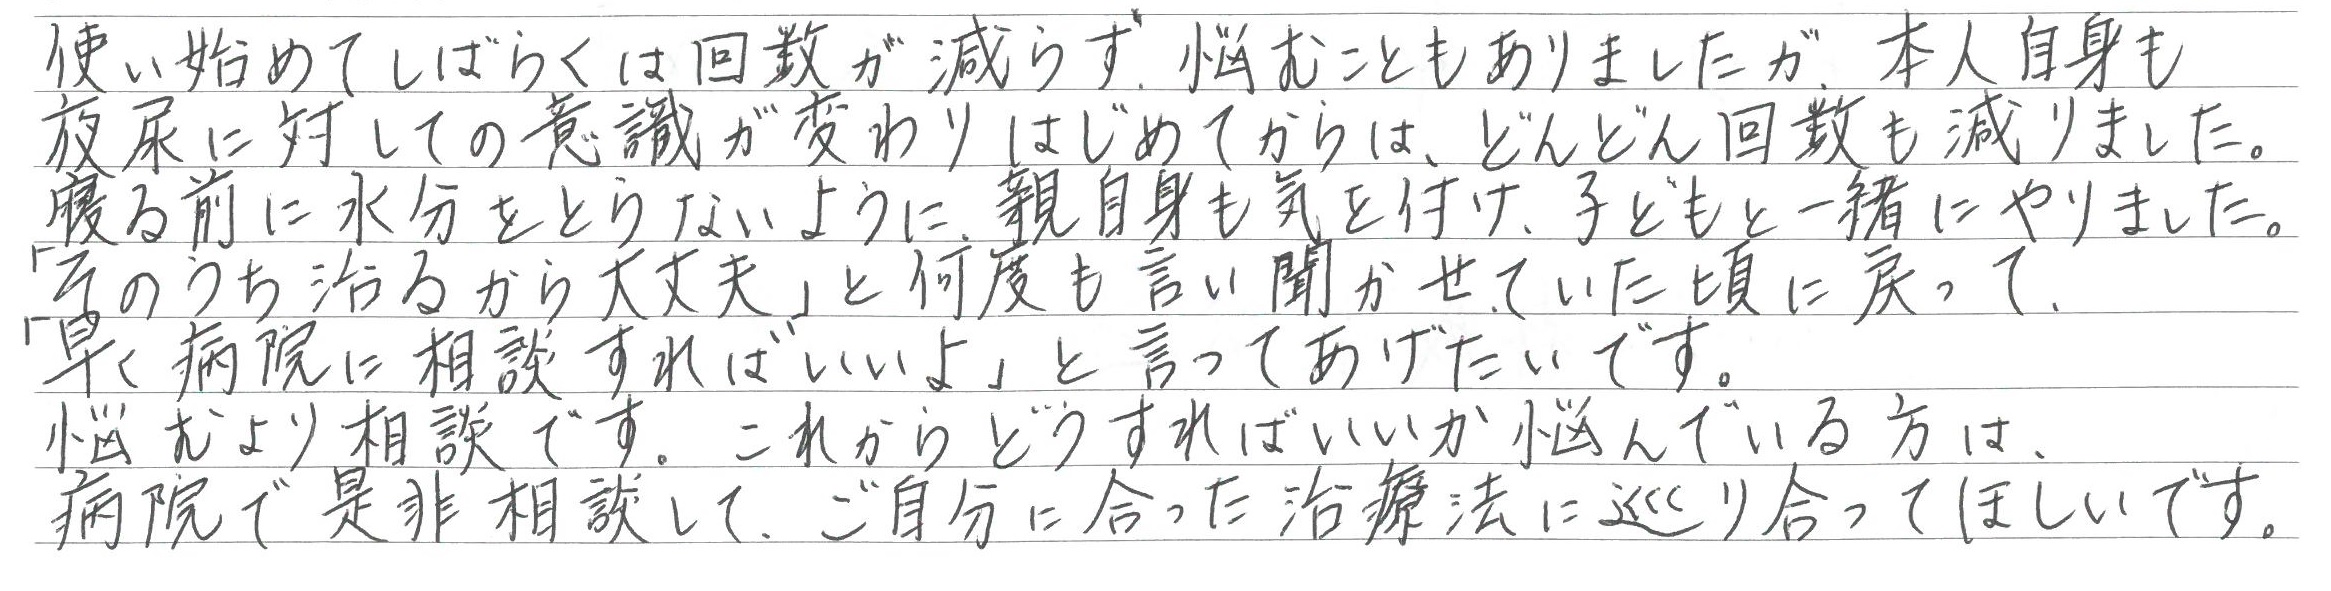 使い始めてしばらくは回数が減らず、悩むこともありましたが、本人自身も
夜尿に対しての意識が変わりはじめてからは、どんどん回数も減りました。
寝る前に水分をとらないように、親自身も気を付け、子どもと一緒にやりました。
「そのうち治るから大丈夫」と何度も言い聞かせていた頃に戻って、
「早く病院に相談すればいいよ」と言ってあげたいです。
悩むより相談です。これからどうすればいいか悩んでいる方は、
病院で是非相談して、ご自分に合った治療法に巡り合ってほしいです。